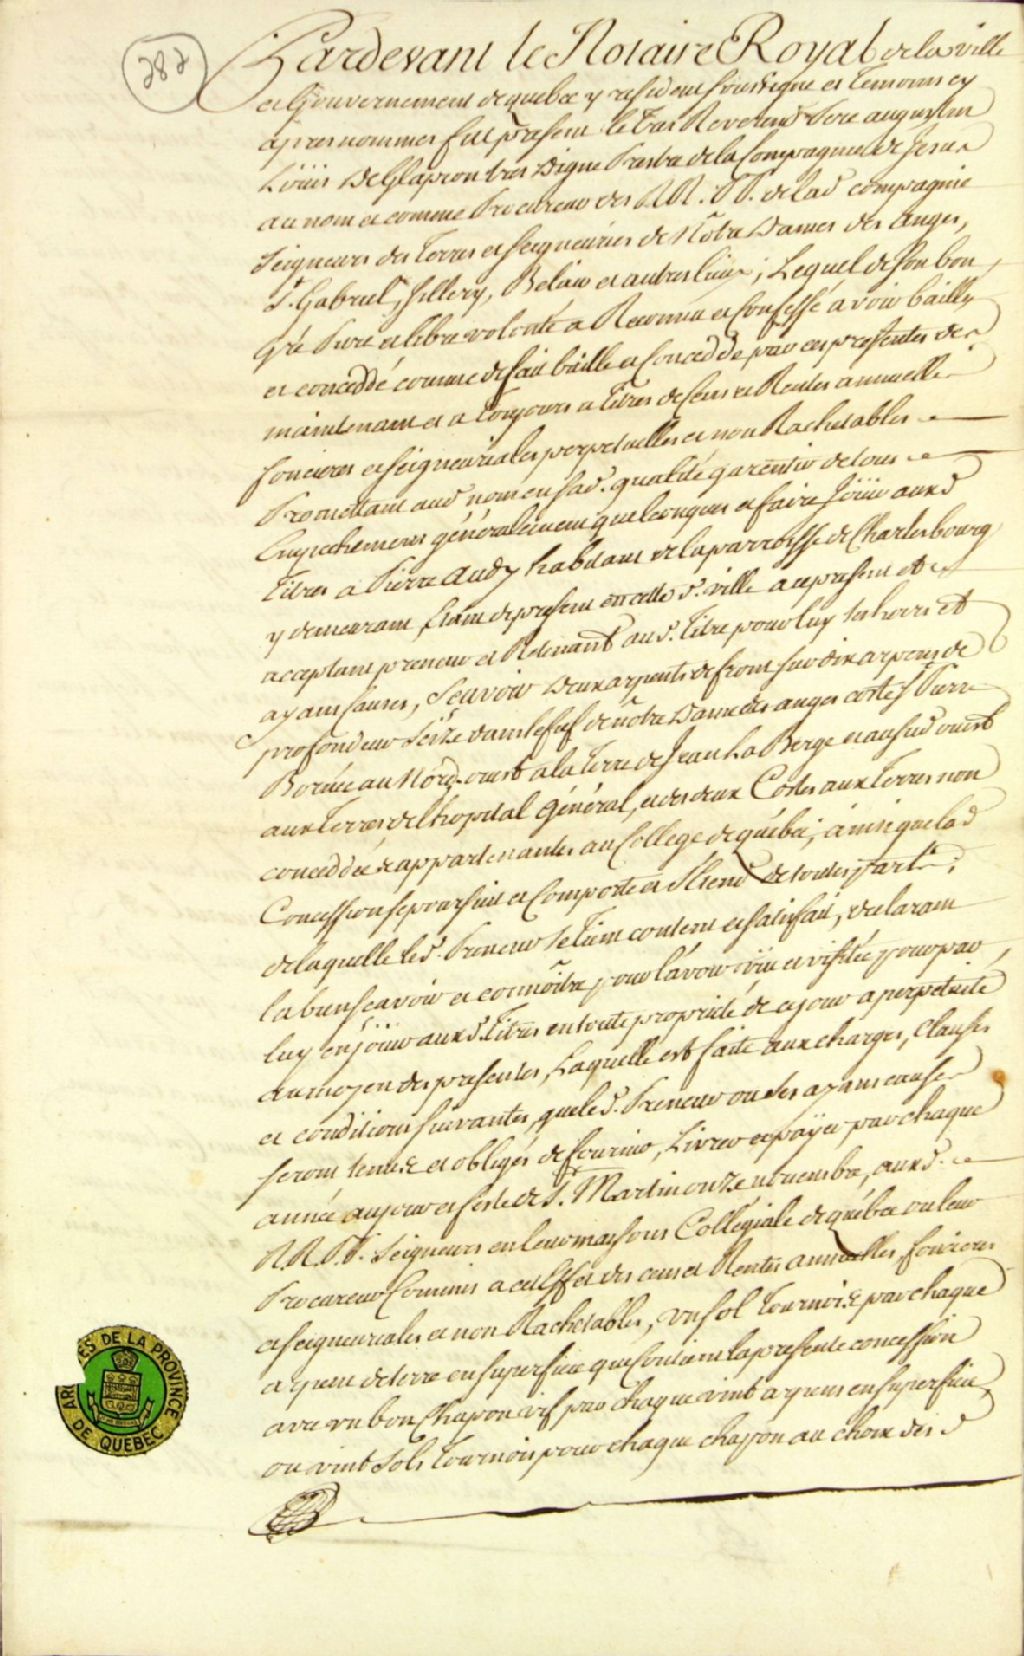 282
Pardevant le Notaire Royal de la ville
et Gouvernement de quebec y residant soussigné et temoins cy
apres nommés fut present le tres Reverend Pere augustin
Loüis De Glapion tres digne Prestre de la Compagnie de Jesus
au nom et comme Procureur des RR. PP. de lad compagnie
Seigneurs des terres et seigneuries de Nôtre Dames des anges,
St. Gabriel, Sillery, Belair et autres lieux; Lequel de son bon
gré pure et libre volonté a Reconnu et Confessé avoir baillé
et conceddé comme de fait baille et Conceddé par ces presentes des
maintenant et a toujours a titres de Cens et Rentes annuelle
foncieres et seigneuriales perpetuelles et non Rachetables
Promettant aud nom en sad. qualité garentir de tous
Empechemens généralement quelconques et faire Joüir auxd
titres a Pierre Audy habitant de la parroisse de Charlesbourg
y demeurant, étant de present en cette d. ville a ce present et
acceptant preneur et Retenant aud. titre pour luy ses hoirs et
ayans causes, Scavoir Deux arpents de front sur dix arpens de
profondeur Scize dans le fief de nôtre Dame des anges coste St Pierre
Bornée au Nord-ouest a la terre de Jean La Berge et au sud ouest
aux terres de l'hopital Général, et des deux Costes aux terres non
conceddée appartenantes au College de québec; ainsi que lad
Concession se poursuit et Comporte et s'etend de toutes parts;
de laquelle led. Preneur se tient content et satisfait, declarant
la bien scavoir et connoître pour l'avoir vüe et visitée pour par
luy en joüir auxd. titres en toute proprieté de ce jour a perpetuité
au moyen des presentes, Laquelle est faite aux charges, Clauses
et conditions suivantes, que led. Preneur ou ses ayans cause
seront tenus et obligés de fournir, Livrer et payer par chaque
année au jour et feste de St. Martin onze novembre, auxd.
RR. PP. Seigneurs en leur maisons Collégiale de québec ou leur
Procureur Commis a cet effet des cens et Rentes annuelles, foncieres
et seigneuriales et non Rachetables, un sol tournois par chaque
arpent de terre en superficie que Contient la presente concession
avec un bon Chapon vif par chaque vint arpens en superficie,
ou vint sols tournois pour chaque chapon au choix desd
ARCHIVES DE LA PROVINCE DE QUEBEC